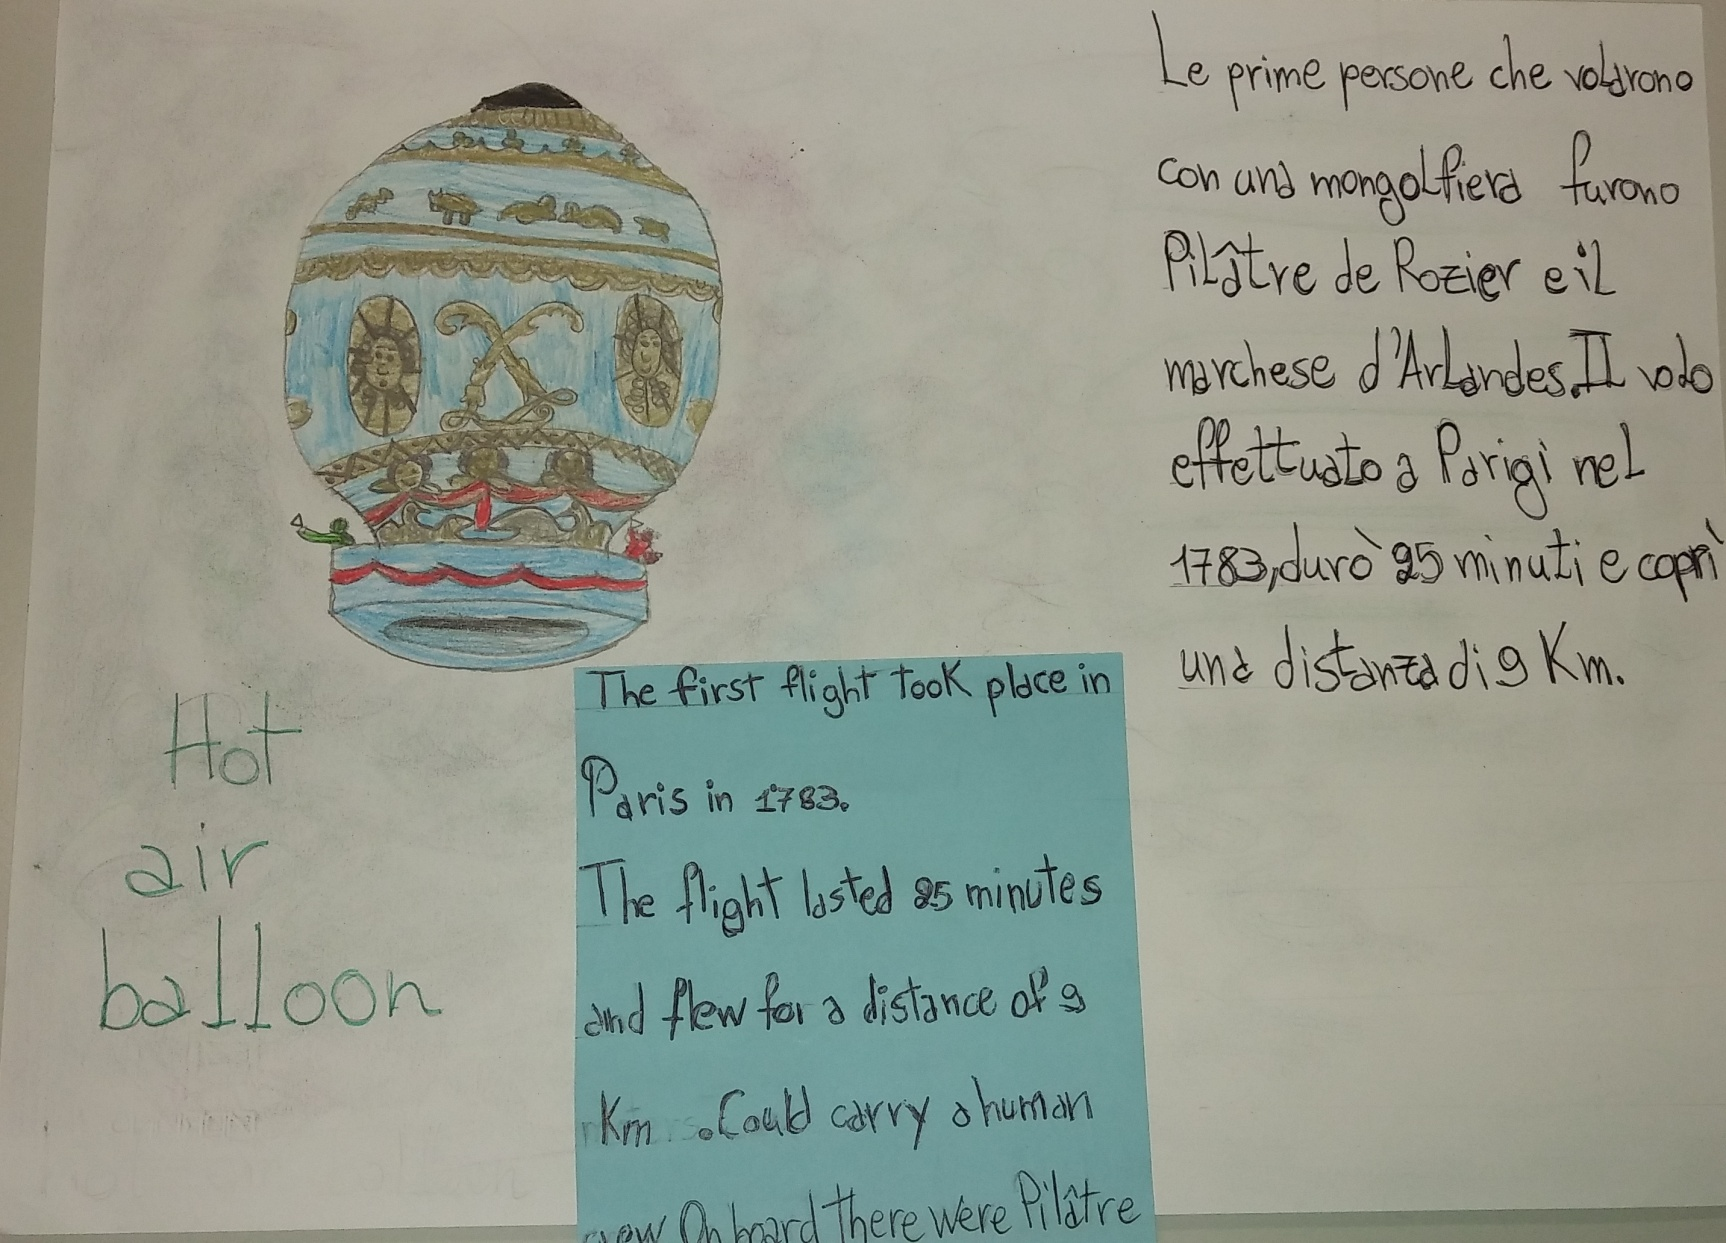 Le prime persone che volarono
con una mongolfiera furono
Pilâtre de Rozier e il
marchese d'Arlandes. Il volo
effettuato a Parigi nel
1783, durò 25 minuti e coprì
una distanza di 9 Km.
Hot
air
balloon
The first flight took place in
Paris in 1783.
The flight lasted 25 minutes
and flew for a distance of 9
Km . Could carry a human
On board there were Pilâtre